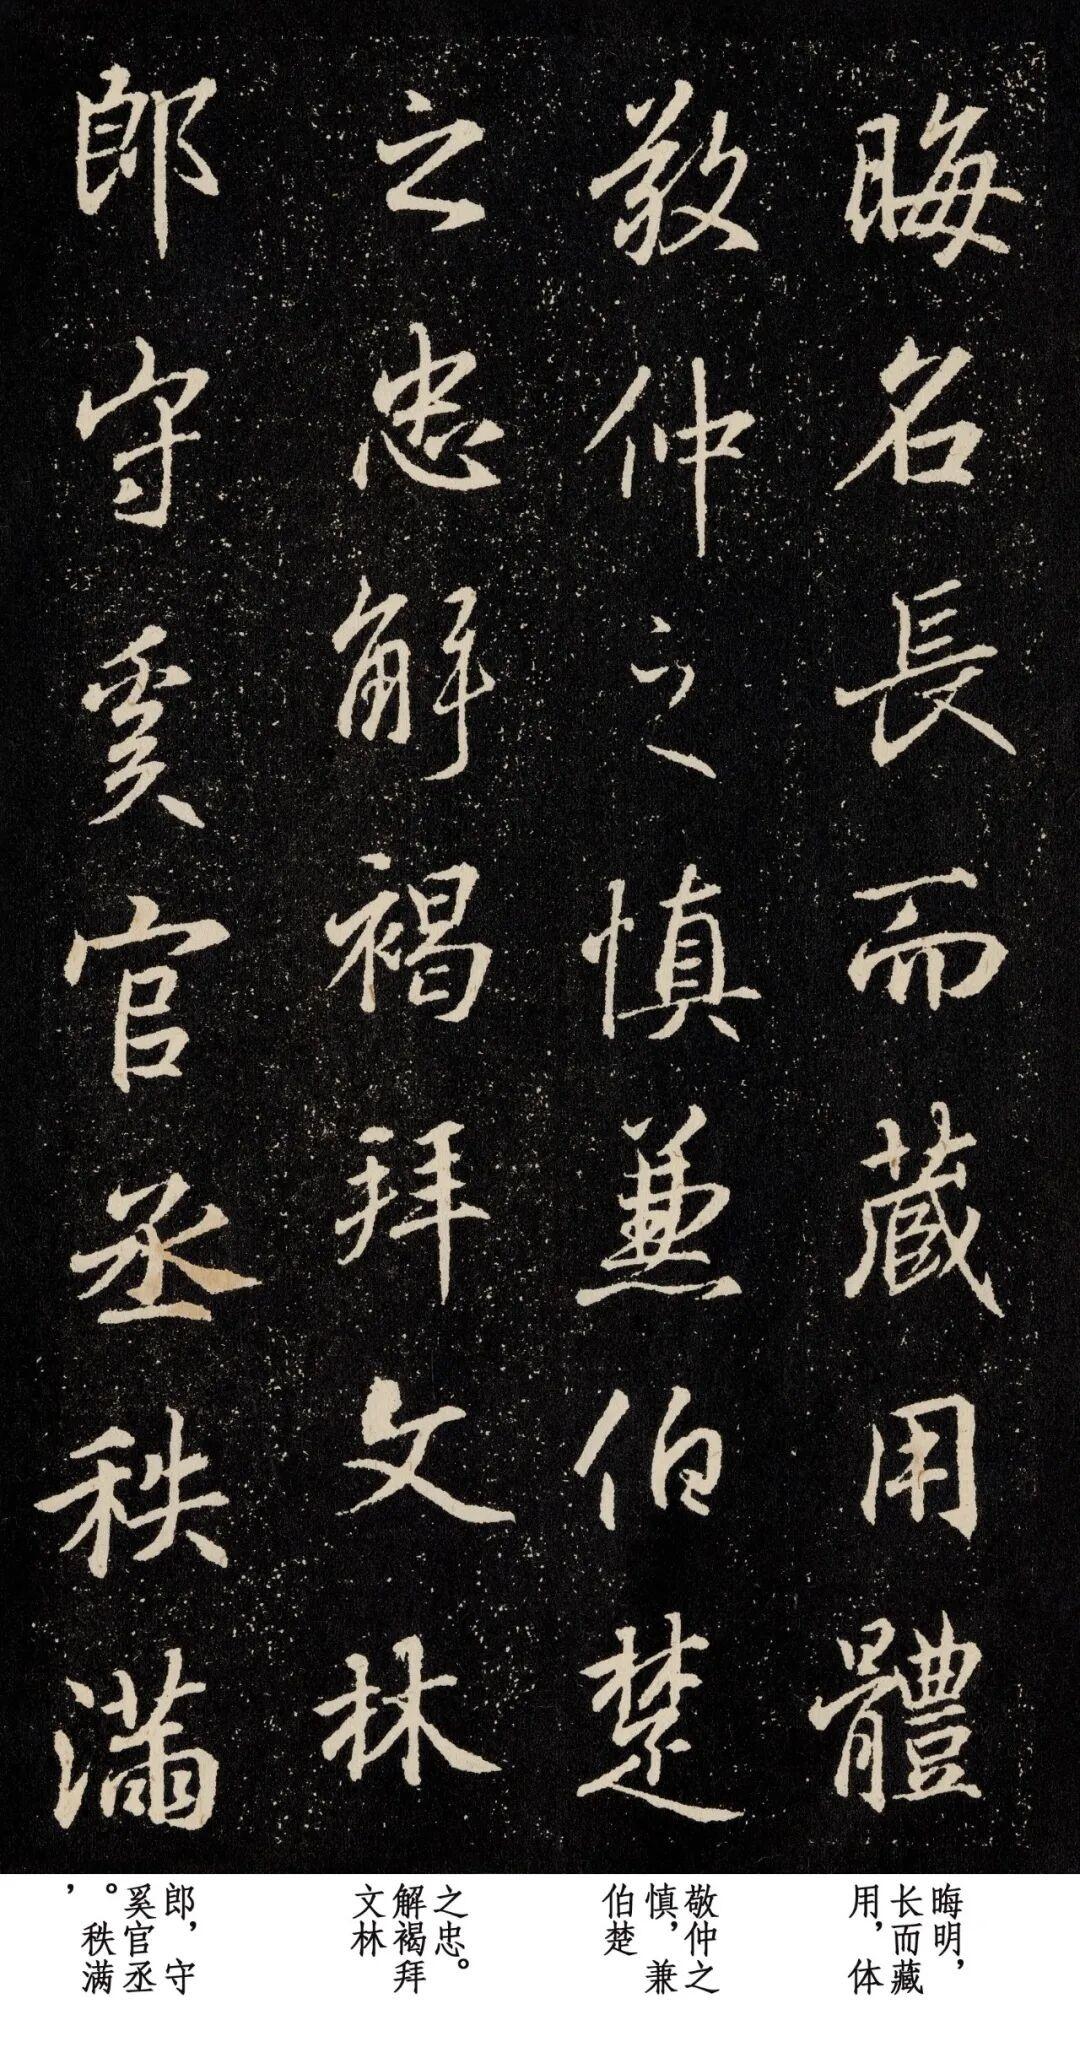 晦名長而蔵用體
敬仲之慎兼伯楚
之忠解褐拜文林
郎守奚官丞秩滿
晦明，
长而藏
用，体
敬仲之
慎，兼
伯楚
之忠。
解褐拜
文林
郎，守
奚官丞
。秩满
，